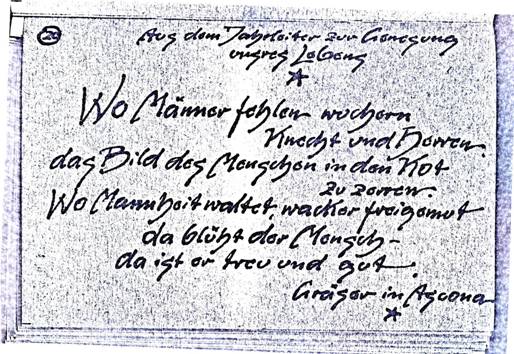 20
Aus dem Jahrleiter zur Genesung
unsres Lebens
Wo Männer fehlen wuchern
Knecht und Herren.
das Bild des Menschen in den Kot
zu zerren.
Wo Mannheit waltet, wacker freigemut
da blüht der Mensch –
da ist er treu und gut.
Gräser in Ascona